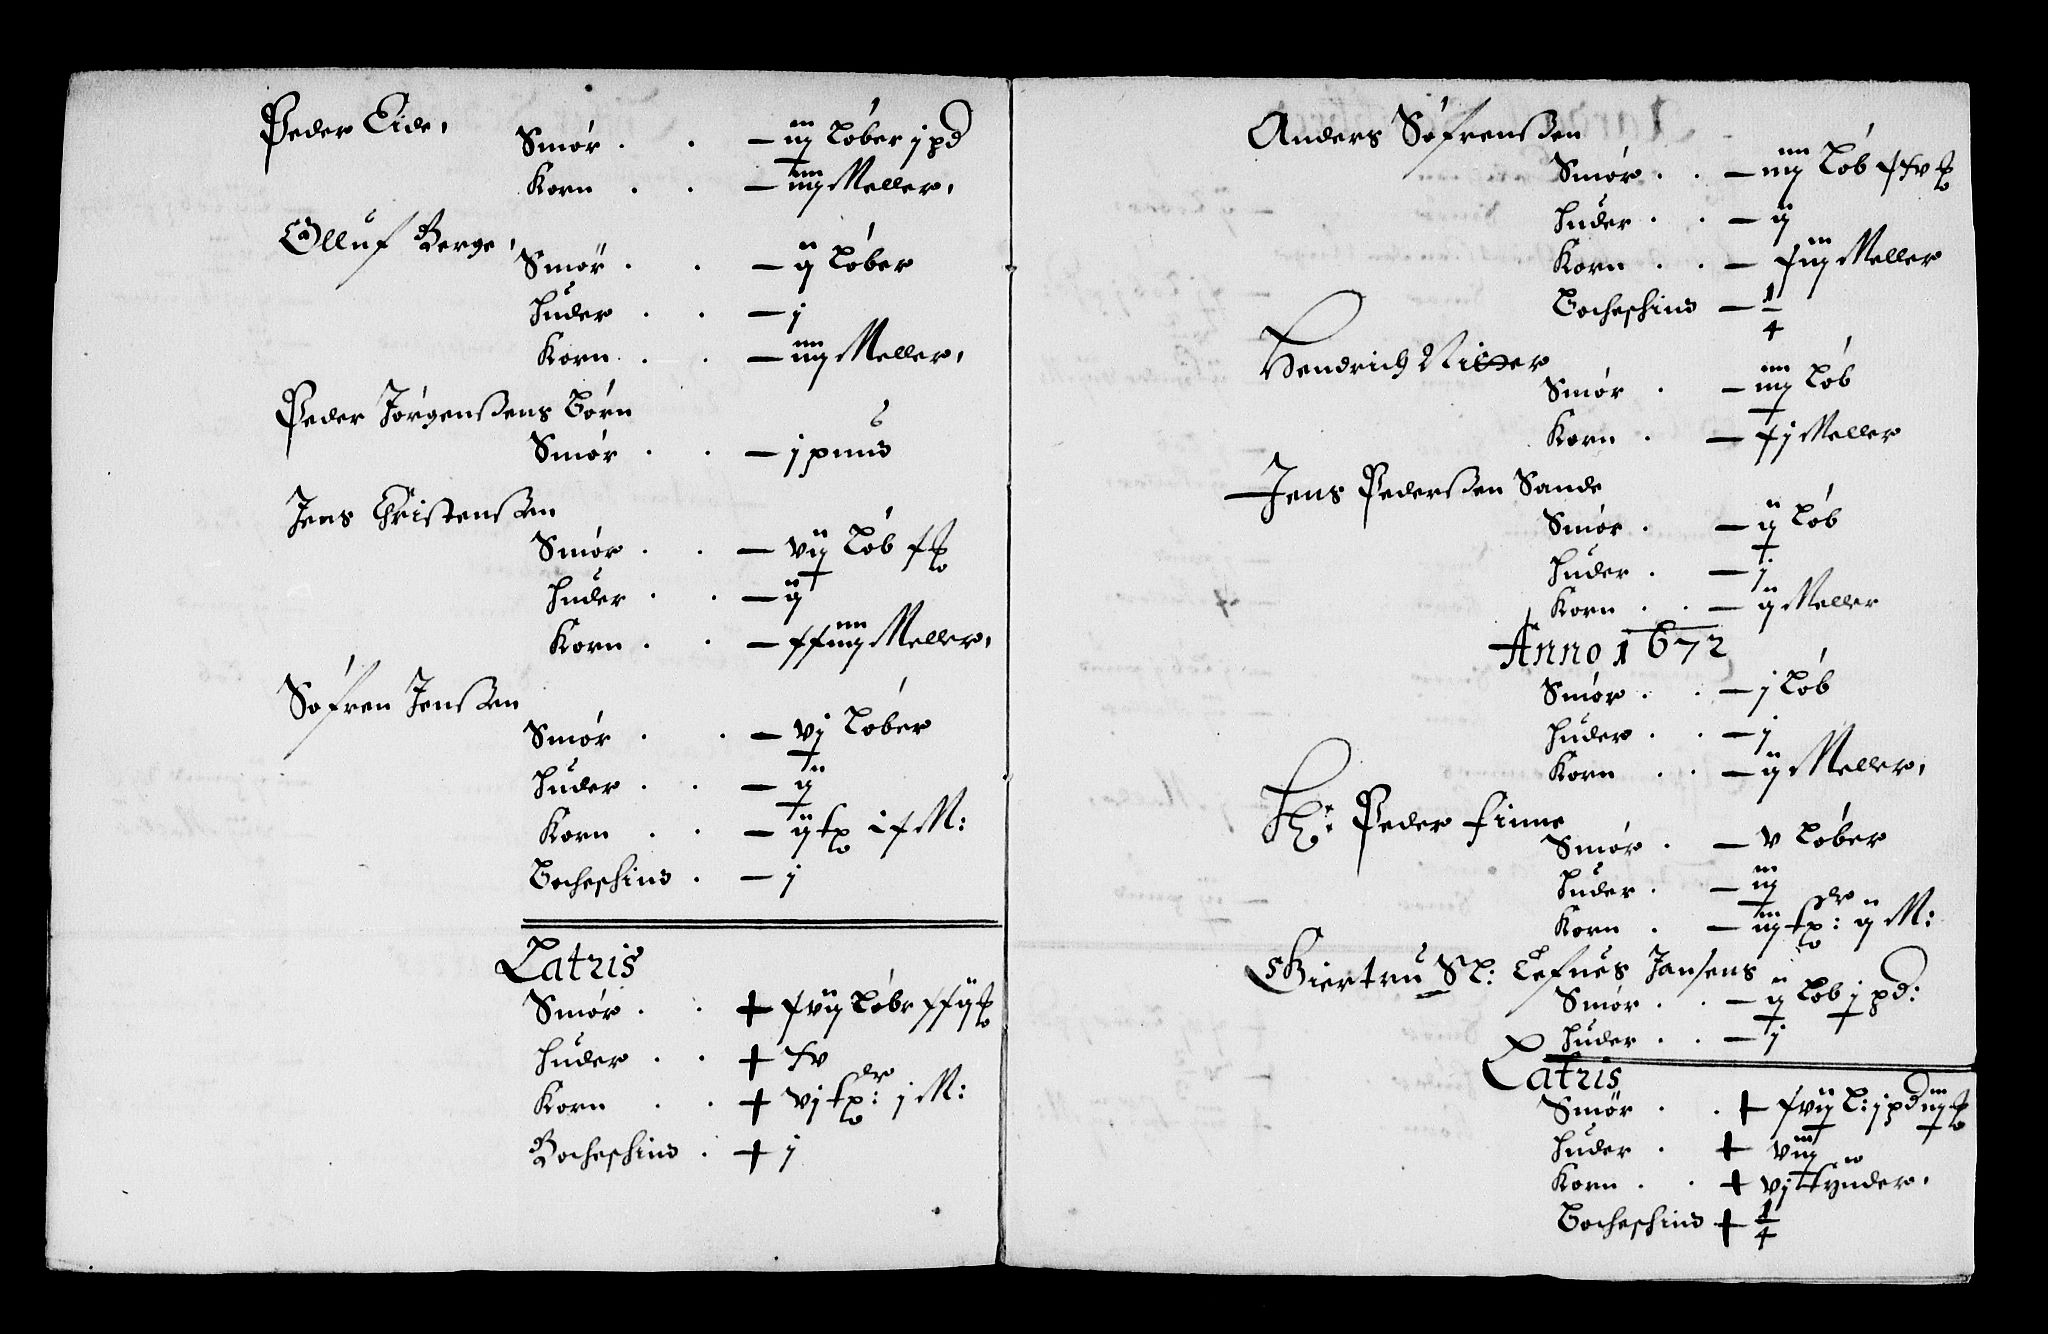 Peder Eide,
Smór . . — iij Lóber j pd
Korn . . — iiij Meller,
Olluf Berge,
Smór . . — ij Lóber
Huder . . — j
Korn . . — iiij Meller,
Peder Jórgenßens Bórn
Smór . . — j pund
Jens Christenßen
Smór . . — vij Lób x ℔
Huder . . — ij
Korn . . — xxiiij Meller,
Sófren Jenßen
Smór . . — vj Lóber
Huder . . — ij
Korn . . — ij tp ix M:
Bocheskind . — j
Latris
Smór . . + xvij Lóbr xxij ℔
Huder . . + xv
Korn . . + vj tpdr: j M:
Bocheskind . + j
Anders Sófrenßen
Smór . . — iiij Lób xxv ℔
Huder . . — ij
Korn . . — xiij Meller
Bocheskind — 1/4
Hendrich
Smór . — iiij Lób
Korn . — xj Meller
Jens Pederßen Sande
Smór . — ij Lób
Huder . — j
Korn . . — ij Meller
Anno 1672
Smór . . — j Lób
Huder . . — j
Korn . . — ij Meller,
Hr: Peder Finne
Smór . — v Lóber
Huder . — iij
Korn . — iij tpdr: ij M:
Giertru Sl: Jansens
Smór . . — ij Lób j pd:
Huder . . — j
Latris
Smór . . + xvij L: j pd iij ℔
Huder . + viij
Korn . . + vj Tynder,
Bocheskind + 1/4